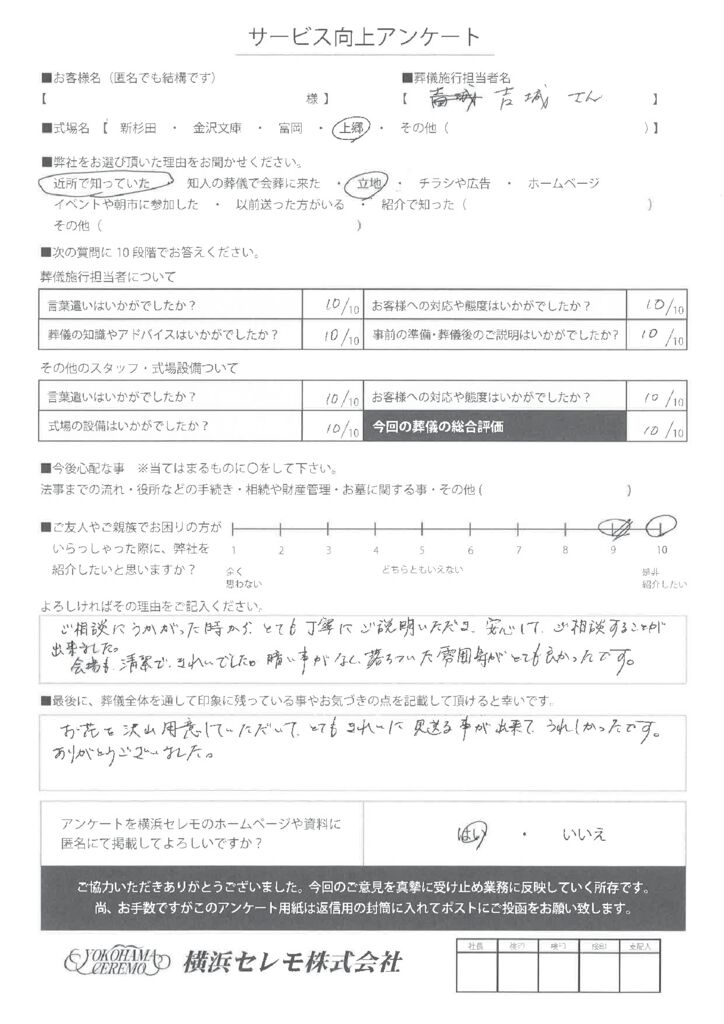 サービス向上アンケート
■お客様名（匿名でも結構です） ■葬儀施行担当者名
【 様】 【 吉城 さん 】
■式場名【 新杉田 ・ 金沢文庫 ・ 富岡 ・ 上郷 ・ その他（ ）】
■弊社をお選び頂いた理由をお聞かせください。
近所で知っていた ・ 知人の葬儀で会葬に来た ・ 立地 ・ チラシや広告 ・ ホームページ
イベントや朝市に参加した ・ 以前送った方がいる ・ 紹介で知った（ ）
その他（ ）
■次の質問に10段階でお答えください。
葬儀施行担当者について
言葉遣いはいかがでしたか？ 10/10 お客様への対応や態度はいかがでしたか？ 10/10
葬儀の知識やアドバイスはいかがでしたか？ 10/10 事前の準備・葬儀後のご説明はいかがでしたか？ 10/10
その他のスタッフ・式場設備ついて
言葉遣いはいかがでしたか？ 10/10 お客様への対応や態度はいかがでしたか？ 10/10
式場の設備はいかがでしたか？ 10/10 今回の葬儀の総合評価 10/10
■今後心配な事 ※当てはまるものに○をして下さい。
法事までの流れ・役所などの手続き・相続や財産管理・お墓に関する事・その他（ ）
■ご友人やご親族でお困りの方が
いらっしゃった際に、弊社を
紹介したいと思いますか？
1 2 3 4 5 6 7 8 9 10
全く思わない どちらともいえない 是非紹介したい
よろしければその理由をご記入ください。
ご相談にうかがった時から、とても丁寧にご説明いただき、安心して、ご相談することが
出来ました。
会場も清潔で、きれいでした。暗い事がなく、落ちついた雰囲気がとても良かったです。
■最後に、葬儀全体を通して印象に残っている事やお気づきの点を記載して頂けると幸いです。
お花を沢山用意していただいて、とてもきれいに見送る事が出来て、うれしかったです。
ありがとうございました。
アンケートを横浜セレモのホームページや資料に
匿名にて掲載してよろしいですか？
はい ・ いいえ
ご協力いただきありがとうございました。今回のご意見を真摯に受け止め業務に反映していく所存です。
尚、お手数ですがこのアンケート用紙は返信用の封筒に入れてポストにご投函をお願い致します。
YOKOHAMA
CEREMO
横浜セレモ株式会社
社長 支配人